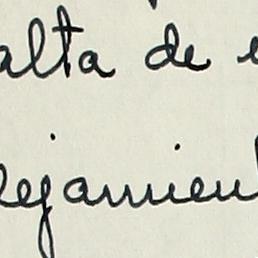 alta de
ejamien